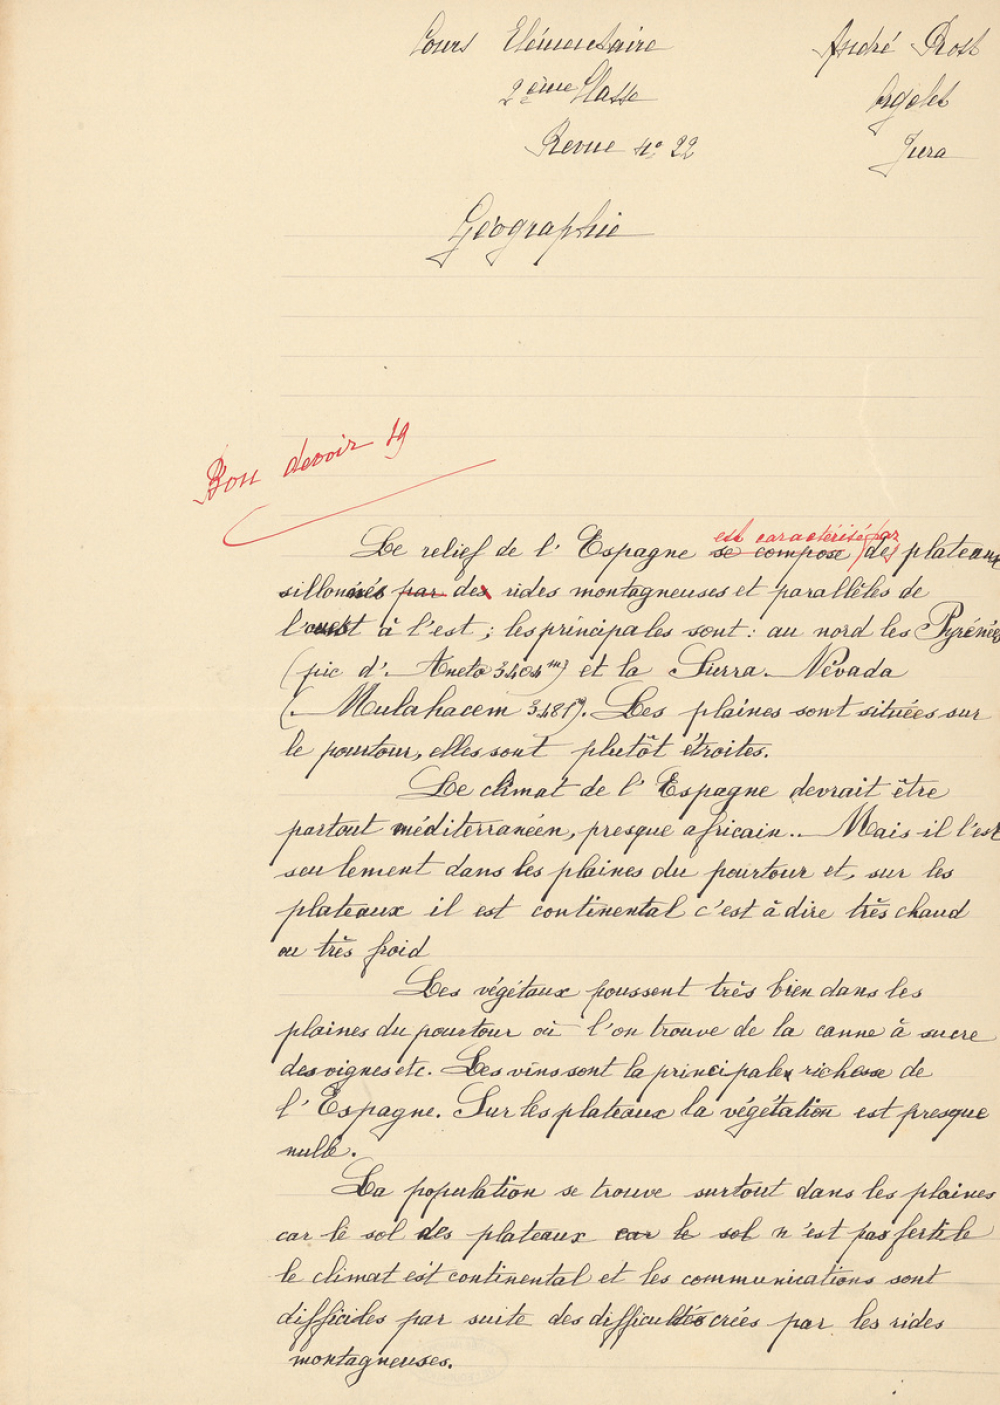 Cours Elémentaire
André Prost
2ème Classe
Orgelet
Revue No 22
Jura
Géographie
Bon devoir 19
est caractérisé par
Le relief de l'Espagne se compose des plateaux
sillonnés par des rides montagneuses et parallèles de
l'ouest à l'est ; les principales sont : au nord les Pyrénées
(pic d'Aneto 3404m) et la Sierra-Névada
(Mulahacem 3481m). Les plaines sont situées sur
le pourtour, elles sont plutôt étroites.
Le climat de l'Espagne devrait être
partout méditerranéen, presque africain. Mais il l'est
seulement dans les plaines du pourtour et, sur les
plateaux il est continental c'est à dire très chaud
ou très froid
Les végétaux poussent très bien dans les
plaines du pourtour où l'on trouve de la canne à sucre
des vignes etc. Les vins sont la principale richesse de
l'Espagne. Sur les plateaux la végétation est presque
nulle.
La population se trouve surtout dans les plaines
car le sol des plateaux car le sol n'est pas fertile
le climat est continental et les communications sont
difficiles par suite des difficultés crées par les rides
montagneuses.